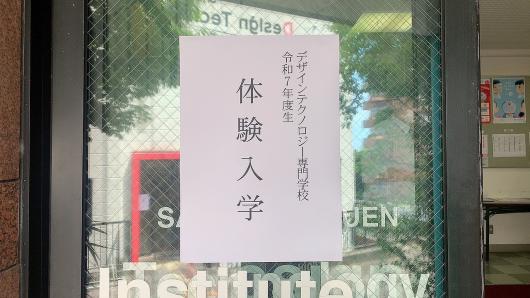 Design Tec
デザインテクノロジー専門学校
令和7年度生
体験入学
SA
JEN
Technology
Institute